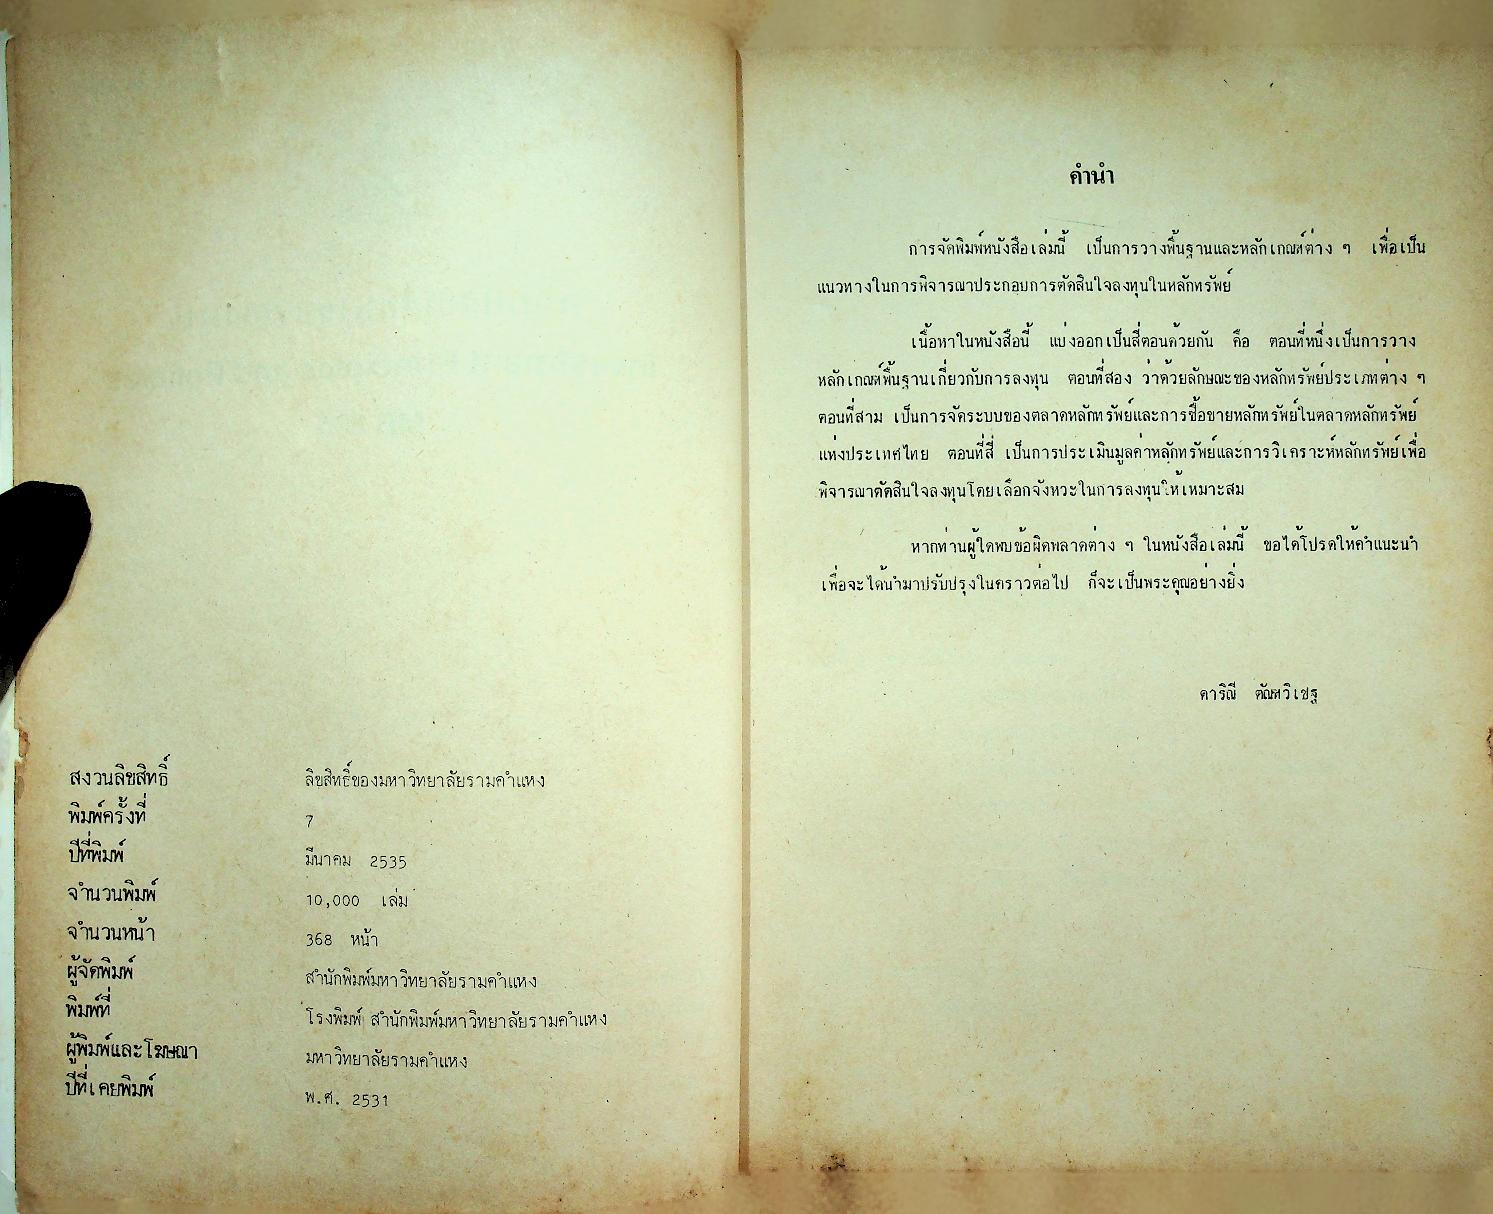 สงวนลิขสิทธิ์ ลิขสิทธิ์ของมหาวิทยาลัยรามคำแหง
พิมพ์ครั้งที่ 7
ปีที่พิมพ์ มีนาคม 2535
จำนวนพิมพ์ 10,000 เล่ม
จำนวนหน้า 368 หน้า
ผู้จัดพิมพ์ สำนักพิมพ์มหาวิทยาลัยรามคำแหง
พิมพ์ที่ โรงพิมพ์ สำนักพิมพ์มหาวิทยาลัยรามคำแหง
ผู้พิมพ์และโฆษณา มหาวิทยาลัยรามคำแหง
ปีที่เคยพิมพ์ พ.ศ. 2531
คำนำ
การจัดพิมพ์หนังสือเล่มนี้ เป็นการวางพื้นฐานและหลักเกณฑ์ต่าง ๆ เพื่อเป็น
แนวทางในการพิจารณาประกอบการตัดสินใจลงทุนในหลักทรัพย์
เนื้อหาในหนังสือนี้ แบ่งออกเป็นสี่ตอนด้วยกัน คือ ตอนที่หนึ่งเป็นการวาง
หลักเกณฑ์พื้นฐานเกี่ยวกับการลงทุน ตอนที่สอง ว่าด้วยลักษณะของหลักทรัพย์ประเภทต่าง ๆ
ตอนที่สาม เป็นการจัดระบบของตลาดหลักทรัพย์และการซื้อขายหลักทรัพย์ในตลาดหลักทรัพย์
แห่งประเทศไทย ตอนที่สี่ เป็นการประเมินมูลค่าหลักทรัพย์และการวิเคราะห์หลักทรัพย์เพื่อ
พิจารณาตัดสินใจลงทุนโดยเลือกจังหวะในการลงทุนให้เหมาะสม
หากท่านผู้ใดพบข้อผิดพลาดต่าง ๆ ในหนังสือเล่มนี้ ขอได้โปรดให้คำแนะนำ
เพื่อจะได้นำมาปรับปรุงในคราวต่อไป ก็จะเป็นพระคุณอย่างยิ่ง
ดาริณี ตัณฑวิเชฐ